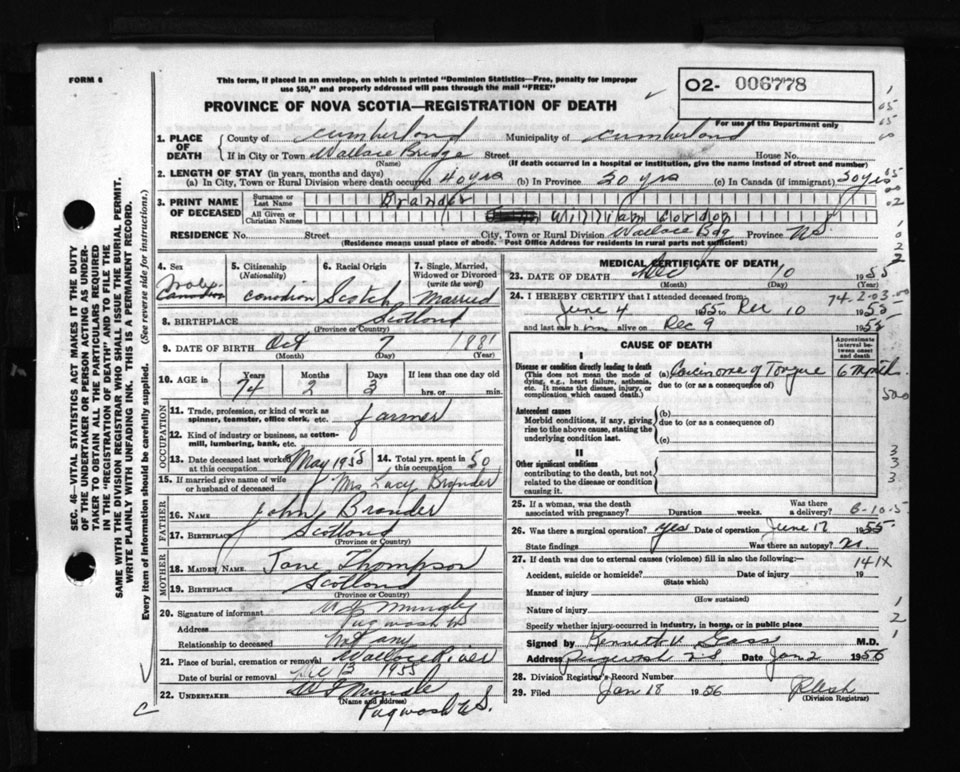 FORM 6
This form, if placed in an envelope, on which is printed "Dominion Statistics—Free, penalty for improper
use $50," and properly addressed will pass through the mail "FREE"
O2- 006778
PROVINCE OF NOVA SCOTIA—REGISTRATION OF DEATH
For use of the Department only
1. PLACE OF DEATH
County of Cumberland Municipality of Cumberland
If in City or Town Wallace Bridge Street House No.
(Name) (If death occurred in a hospital or institution, give the name instead of street and number)
2. LENGTH OF STAY (in years, months and days)
(a) In City, Town or Rural Division where death occurred 40 yrs (b) In Province 50 yrs (c) In Canada (if immigrant) 50 yrs
3. PRINT NAME OF DECEASED
Surname or Last Name Brander
All Given or Christian Names William Gordon
RESIDENCE No. Street City, Town or Rural Division Wallace Bdg Province N.S.
(Residence means usual place of abode. Post Office Address for residents in rural parts not sufficient)
4. Sex Male Canadian
5. Citizenship (Nationality) Canadian
6. Racial Origin Scotch
7. Single, Married, Widowed or Divorced (write the word) Married
8. BIRTHPLACE Scotland
(Province or Country)
9. DATE OF BIRTH Oct 7 1881
(Month) (Day) (Year)
10. AGE in Years Months Days If less than one day old
74 2 3 hrs. or min.
OCCUPATION
11. Trade, profession, or kind of work as spinner, teamster, office clerk, etc. farmer
12. Kind of industry or business, as cotton-mill, lumbering, bank, etc.
13. Date deceased last worked at this occupation May 1955
14. Total yrs. spent in this occupation 50
15. If married give name of wife or husband of deceased Mrs Lacy Brander
FATHER
16. NAME John Brander
17. BIRTHPLACE Scotland
(Province or Country)
MOTHER
18. MAIDEN NAME Jane Thompson
19. BIRTHPLACE Scotland
(Province or Country)
20. Signature of informant
Address Pugwash N.S.
Relationship to deceased Not any
21. Place of burial, cremation or removal Wallace River
Date of burial or removal Dec 13 1955
22. UNDERTAKER
(Name and address)
Pugwash N.S.
MEDICAL CERTIFICATE OF DEATH
23. DATE OF DEATH Dec 10 1955
(Month) (Day)
24. I HEREBY CERTIFY that I attended deceased from
June 4 1955 to Dec 10 1955
and last saw him alive on Dec 9 1955
CAUSE OF DEATH
Approximate interval between onset and death
I
Disease or condition directly leading to death
(This does not mean the mode of dying, e.g., heart failure, asthenia, etc. It means the disease, injury, or complication which caused death.)
(a) Carcinoma of Tongue 6 Months
due to (or as a consequence of)
Antecedent causes
Morbid conditions, if any, giving rise to the above cause, stating the underlying condition last.
(b)
due to (or as a consequence of)
(c)
II
Other significant conditions
contributing to the death, but not related to the disease or condition causing it.
25. If a woman, was the death associated with pregnancy? Duration weeks. Was there a delivery?
26. Was there a surgical operation? Yes Date of operation June 17 1955
State findings Was there an autopsy? No
27. If death was due to external causes (violence) fill in also the following:—
141X
Accident, suicide or homicide? Date of injury 19
(State which)
Manner of injury
(How sustained)
Nature of injury
Specify whether injury occurred in industry, in home, or in public place
Signed by Kenneth V. Glass M.D.
Address Pugwash N.S. Date Jan 2 1956
28. Division Registrar's Record Number
29. Filed Jan 18 1956
(Division Registrar)
SEC. 46—VITAL STATISTICS ACT MAKES IT THE DUTY
OF THE UNDERTAKER OR PERSON ACTING AS UNDER-
TAKER TO OBTAIN ALL THE PARTICULARS REQUIRED
IN THE "REGISTRATION OF DEATH" AND TO FILE THE
SAME WITH THE DIVISION REGISTRAR WHO SHALL ISSUE THE BURIAL PERMIT.
WRITE PLAINLY WITH UNFADING INK. THIS IS A PERMANENT RECORD.
Every item of information should be carefully supplied. (See reverse side for instructions.)